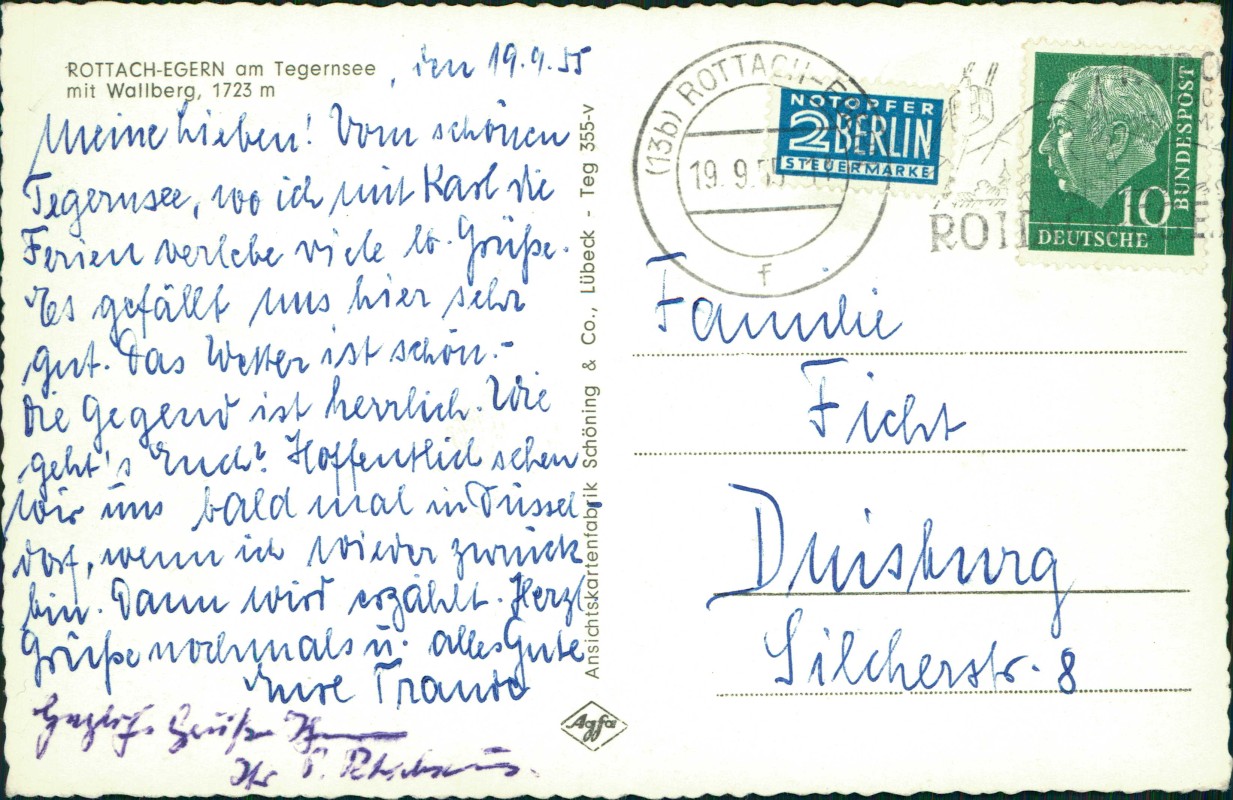 ROTTACH-EGERN am Tegernsee
mit Wallberg, 1723 m
, den 19.9.55
Meine Lieben! Vom schönen
Tegernsee, wo ich mit Karl die
Ferien verlebe viele lb. Grüße.
Es gefällt uns hier sehr
gut. Das Wetter ist schön.-
Die Gegend ist herrlich. Wie
geht's Euch? Hoffentlich sehen
wir uns bald mal in Düssel-
dorf, wenn ich wieder zurück
bin. Dann wird erzählt. Herzl.
Grüße nochmals u. alles Gute
Eure Traude
Grüße
Ihr
Ansichtskartenfabrik Schöning & Co., Lübeck - Teg 355-v
Agfa
(13b) ROTTACH-E
19.9.55
f
NOTOPFER
2 BERLIN
STEUERMARKE
ROT
10
DEUTSCHE
BUNDESPOST
Familie
Ficht
Duisburg
Silcherstr. 8